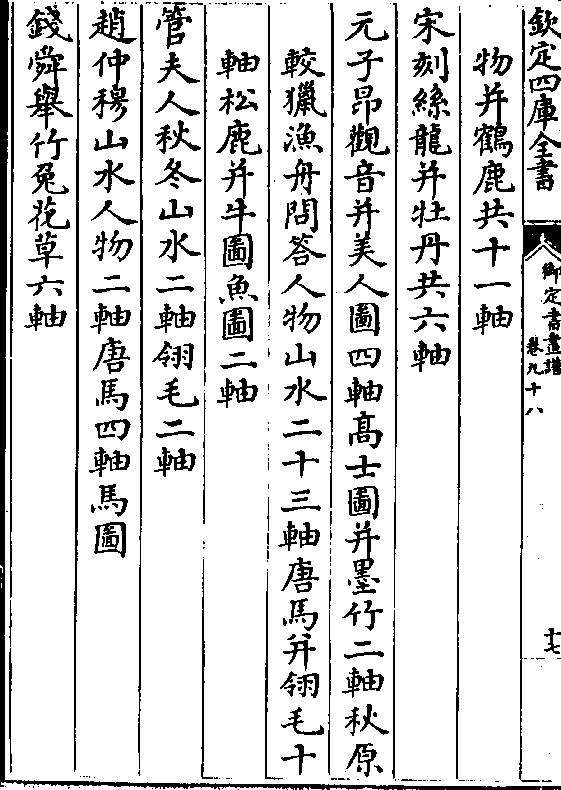 欽定四庫全書
御定書畫譜
卷九十八
十七
物并鶴鹿共十一軸
宋刻絲龍并牡丹共六軸
元子昂觀音并美人圖四軸高士圖并墨竹二軸秋原
較獵漁舟問答人物山水二十三軸唐馬并翎毛十
軸松鹿并牛圖魚圖二軸
管夫人秋冬山水二軸翎毛二軸
趙仲穆山水人物二軸唐馬四軸馬圖
錢舜舉竹兔花草六軸